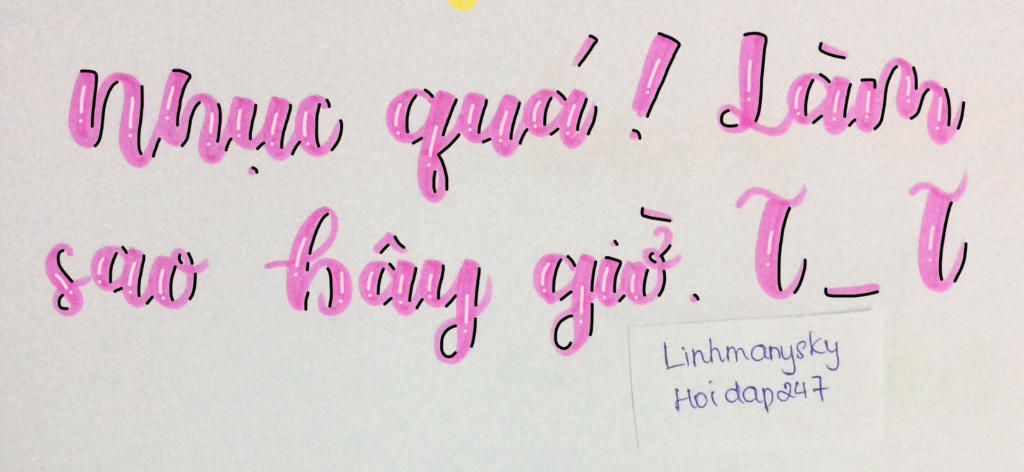 Nhục quá! Làm
sao bây giờ. T_T
Linhmanysky
Hoidap247